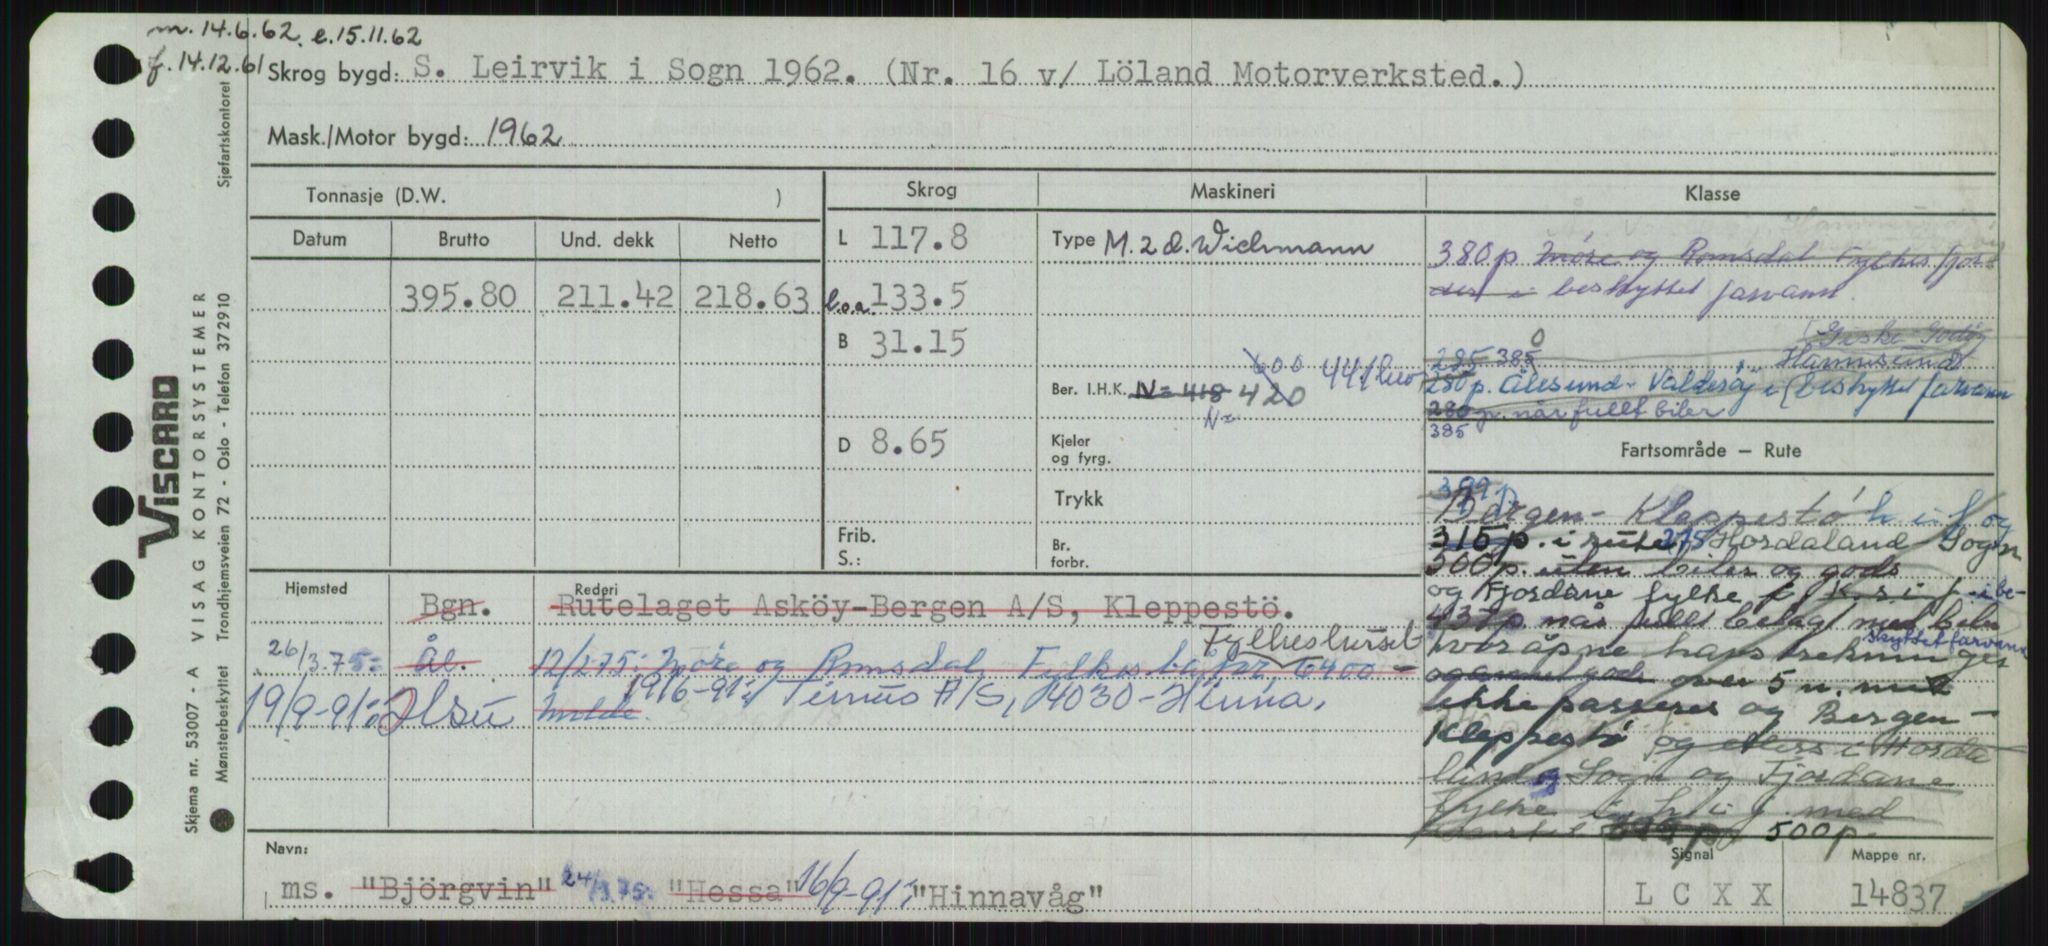 m. 14.6.62. e.15.11.62
f. 14.12.61
Skrog bygd: S. Leirvik i Sogn 1962. (Nr. 16 v/ Löland Motorverksted.)
Mask./Motor bygd: 1962
Tonnasje (D.W. )
Skrog
Maskineri
Klasse
Datum Brutto Und. dekk Netto
395.80 211.42 218.63
L 117.8
l.o.a. 133.5
B 31.15
D 8.65
Frib.
S.:
Type M. 2 d. Wichmann
600
Ber. I.H.K. N= 418 420
N=
Kjeler
og fyrg.
Trykk
Br.
forbr.
380 p Møre og Romsdal Fylkes fjor-
der i beskyttet farvann.
Giske Godøy
285 385 Hamnsund
250 p. Ålesund - Valderøy i beskyttet farvann
280 p. når fullt biler
385
Fartsområde — Rute
399 p
Bergen - Kleppestö h i f og
315 p. i rute 275 Hordaland Sogn
300 p. uten biler og gods
og Fjordane fylke i be-
437 p når fullt belagt med biler
skyttet farvann
hvor åpne havstrekninger
over 5 n. m
ikke passeres og Bergen -
Kleppestö og ellers i Horda
land og Sogn og Fjordane
fylke h i f med
500 p.
Hjemsted Rederi
Bgn. Rutelaget Asköy-Bergen A/S, Kleppestö.
Fylkeshuset
26/3.75: Ål. 12/2 75: Møre og Romsdal Fylkesbåtar, 6400 -
Molde.
19/9-91: 19/6-91: A/S, 4030 - Hinna.
Navn:
ms. "Björgvin" 24/3.75: "Hessa" 16/9-91: "Hinnavåg"
Signal
L C X X
Mappe nr.
14837
VISCARD
VISAG KONTORSYSTEMER
Skjema nr. 53007 - A
Mønsterbeskyttet
Trondhjemsveien 72 - Oslo - Telefon 372910
Sjøfartskontoret